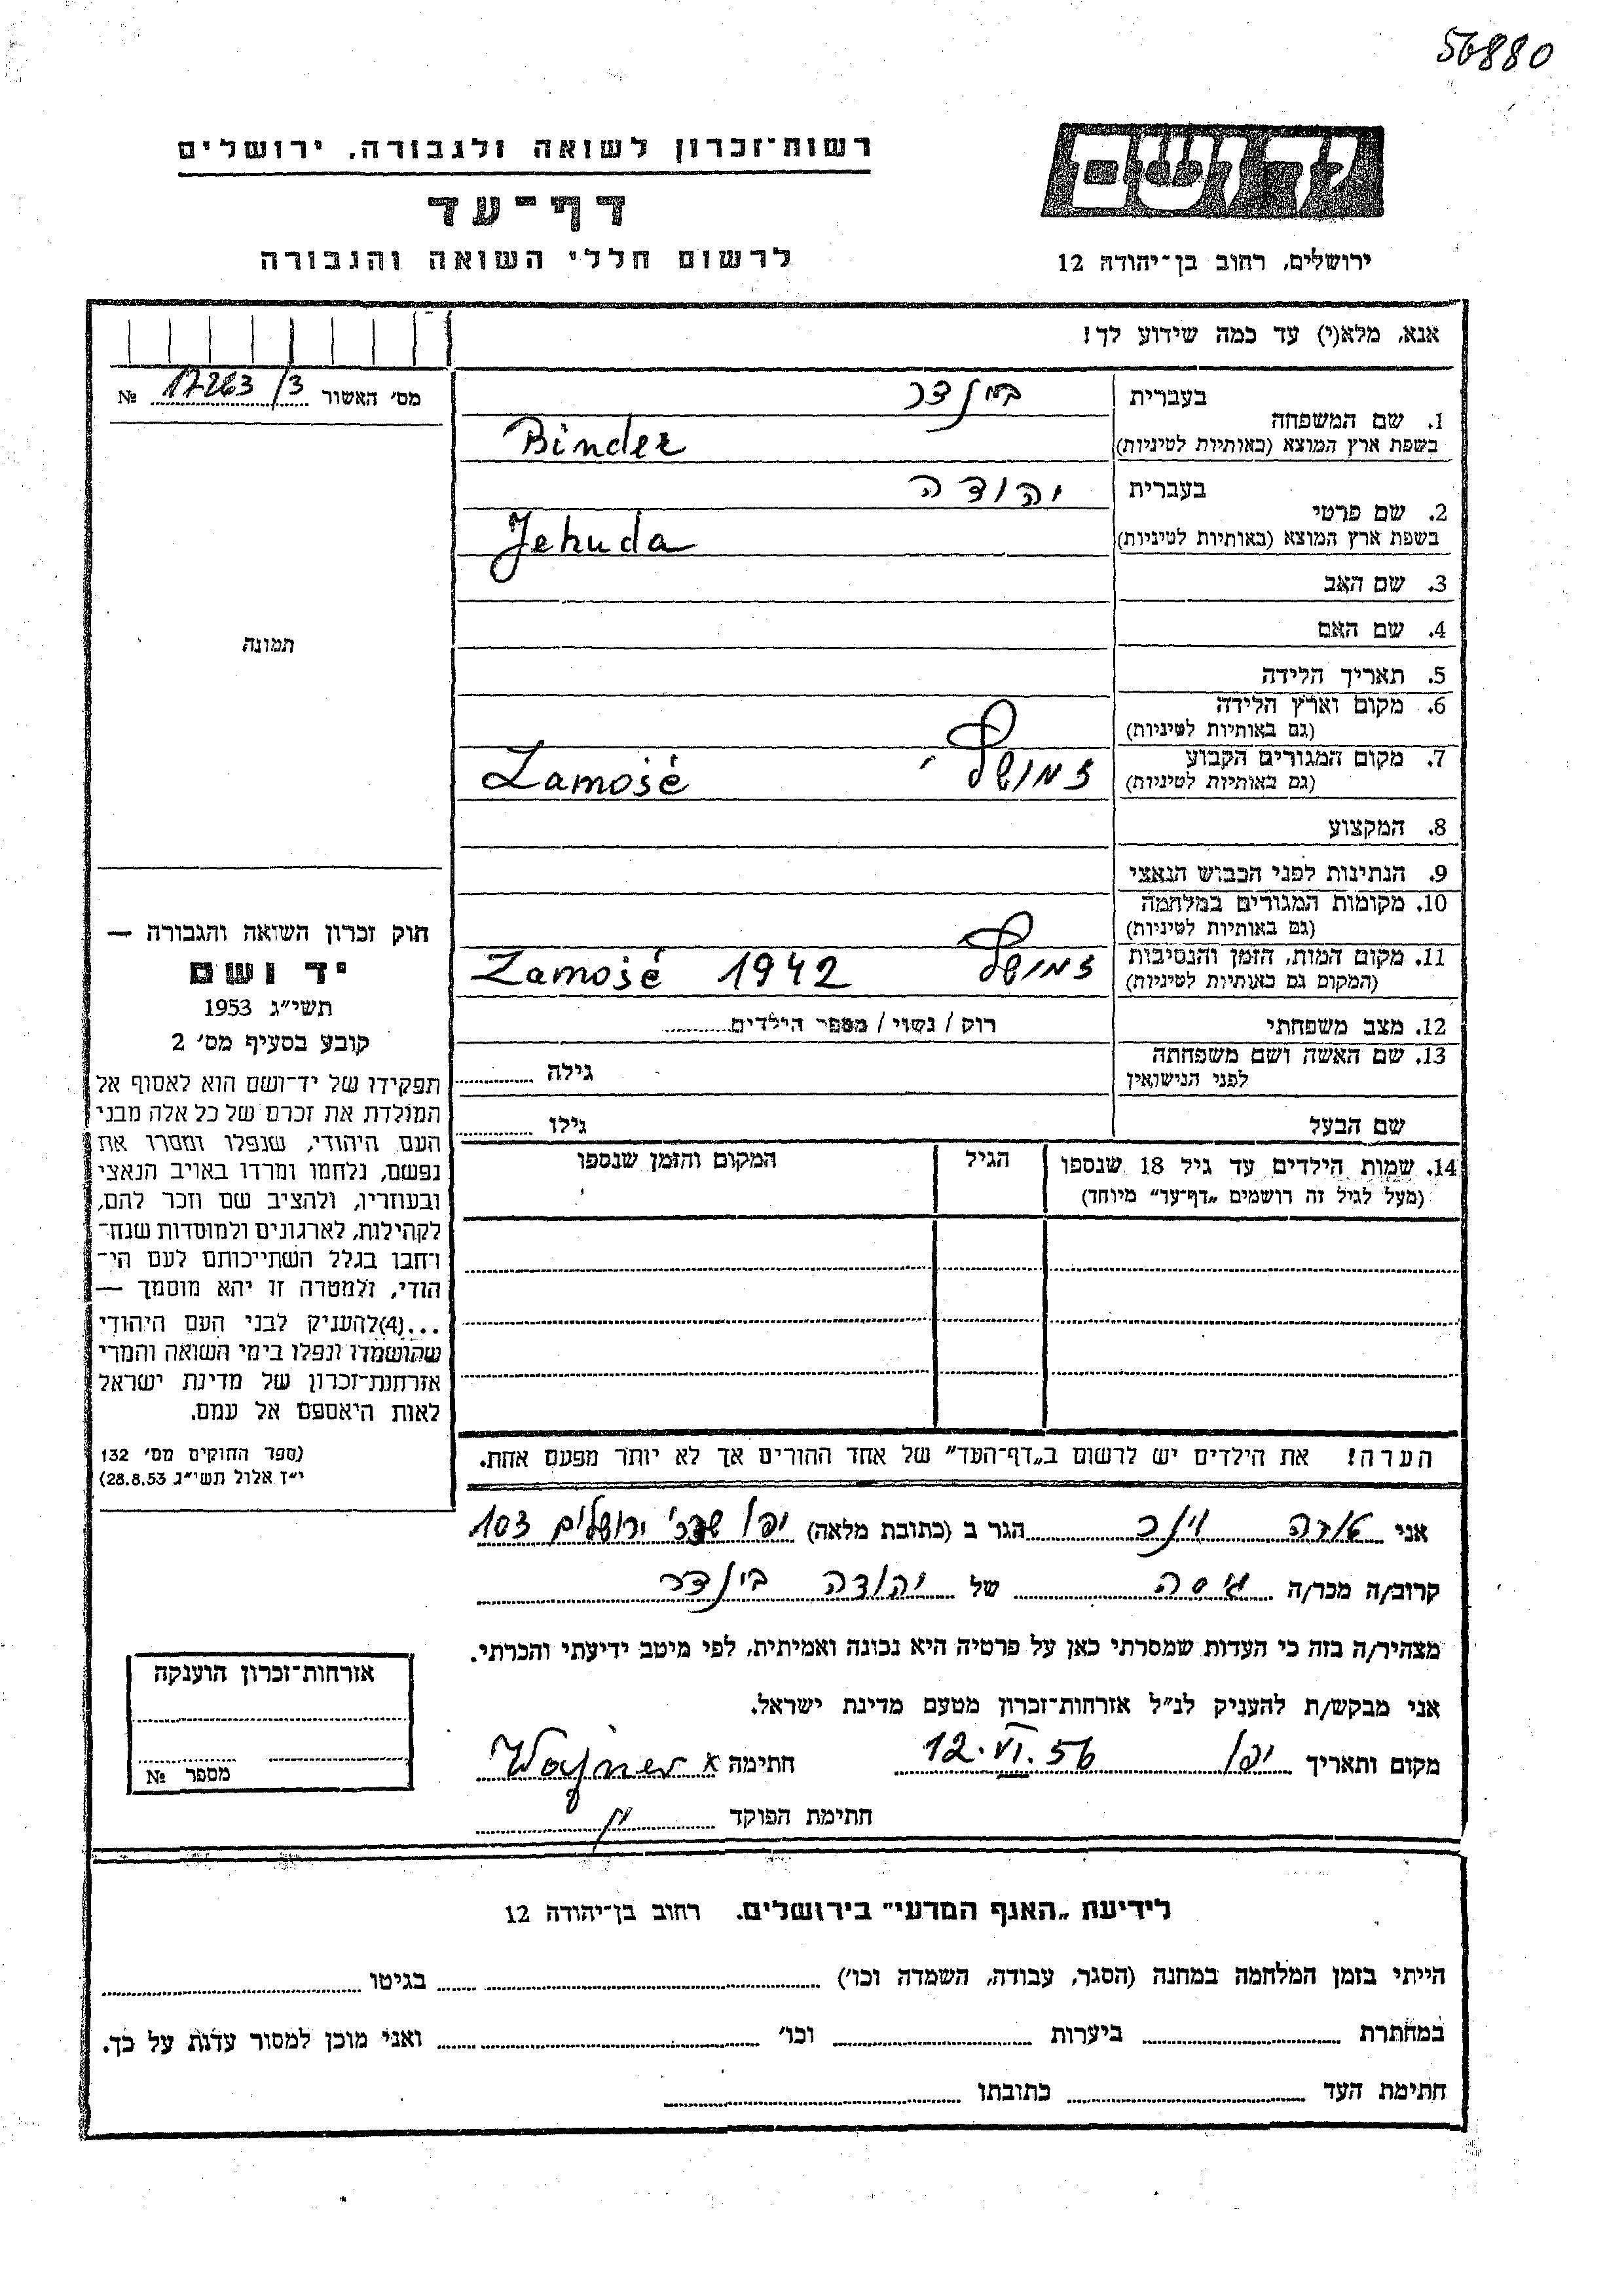 56880
רשות־זכרון לשואה ולגבורה. ירושלים
דף־עד
לרשום חללי השואה והגבורה
יד ושם
ירושלים, רחוב בן־יהודה 12
אנא, מלא(י) עד כמה שידוע לך!
מס׳ האשור 17263/3 №
תמונה
1. שם המשפחה
בעברית בינדר
בשפת ארץ המוצא (באותיות לטיניות) Binder
2. שם פרטי
בעברית יהודה
בשפת ארץ המוצא (באותיות לטיניות) Jehuda
3. שם האב
4. שם האם
5. תאריך הלידה
6. מקום וארץ הלידה
(גם באותיות לטיניות)
7. מקום המגורים הקבוע
(גם באותיות לטיניות) Zamość
8. המקצוע
9. הנתינות לפני הכבוש הנאצי
10. מקומות המגורים במלחמה
(גם באותיות לטיניות)
11. מקום המות, הזמן והנסיבות
(המקום גם באותיות לטיניות) Zamość 1942
12. מצב משפחתי רוק / נשוי / מספר הילדים
13. שם האשה ושם משפחתה
לפני הנישואין גילה
שם הבעל גילו
14. שמות הילדים עד גיל 18 שנספו
(מעל לגיל זה רושמים „דף־עד” מיוחד)
הגיל
המקום והזמן שנספו
הערה! את הילדים יש לרשום ב„דף־העד” של אחד ההורים אך לא יותר מפעם אחת.
חוק זכרון השואה והגבורה —
יד ושם
תשי״ג 1953
קובע בסעיף מס׳ 2
תפקידו של יד־ושם הוא לאסוף אל
המולדת את זכרם של כל אלה מבני
העם היהודי, שנפלו ומסרו את
נפשם, נלחמו ומרדו באויב הנאצי
ובעוזריו, ולהציב שם וזכר להם,
לקהילות, לארגונים ולמוסדות שנח־
רחבו בגלל השתייכותם לעם הי־
הודי, ולמטרה זו יהא מוסמך —
...(4)להעניק לבני העם היהודי
שהושמדו ונפלו בימי השואה והמרי
אזרחות־זכרון של מדינת ישראל
לאות היאספם אל עמם.
(ספר החוקים מס׳ 132
י״ז אלול תשי״ג 28.8.53)
אני וינר הגר ב (כתובת מלאה) יפו שד׳ ירושלים 103
קרוב/ה מכר/ה גיסה של יהודה בינדר
מצהיר/ה בזה כי העדות שמסרתי כאן על פרטיה היא נכונה ואמיתית, לפי מיטב ידיעתי והכרתי.
אני מבקש/ת להעניק לנ״ל אזרחות־זכרון מטעם מדינת ישראל.
מקום ותאריך יפו 12.VI.56 חתימה x Wajner
חתימת הפוקד
אזרחות־זכרון הוענקה
מספר №
לידיעת „האגף המדעי” בירושלים. רחוב בן־יהודה 12
הייתי בזמן המלחמה במחנה (הסגר, עבודה, השמדה וכו׳) בגיטו
במחתרת ביערות וכו׳ ואני מוכן למסור עדות על כך.
חתימת העד כתובתו